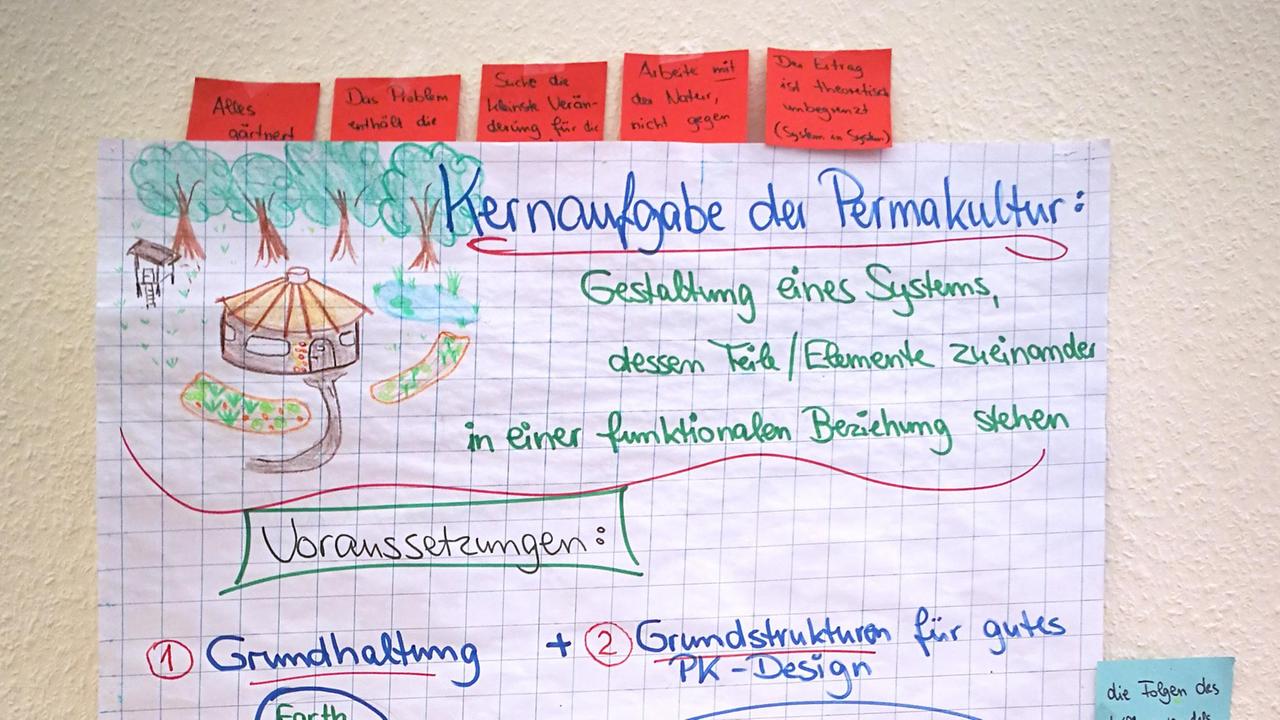 Alles
gärtnert
Das Problem
enthält die
Suche die
kleinste Verän-
derung für die
Arbeite mit
der Natur,
nicht gegen
Der Ertrag
ist theoretisch
unbegrenzt
(System in System)
Kernaufgabe der Permakultur:
Gestaltung eines Systems,
dessen Teile/Elemente zueinander
in einer funktionalen Beziehung stehen
Voraussetzungen:
1 Grundhaltung
+ 2 Grundstrukturen für gutes
PK-Design
Earth
die Folgen des